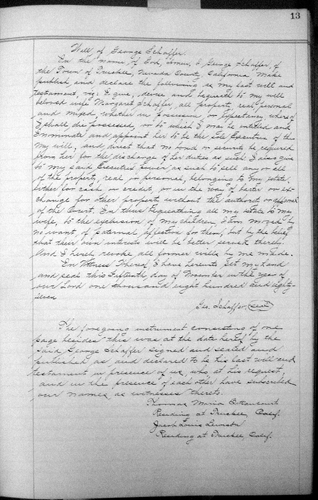 13
Will of George Schaffer.
In the name of God, Amen, I, George Schaffer, of
the Town of Truckee, Nevada County, California make
publish and declare the following as my last will and
testament, viz: I give, devise and bequeath to my well
beloved wife Margaret Schaffer, all property, real, personal
and mixed, whether in possession, or expectancy where of
I shall die possessed, or to which I may be entitled and
I nominate and appoint her to be the sole Executrix of this
My will, and direct that no bond or surety be required
from her for the discharge of her duties as such. I also give
to my said Executrix power as such to sell any or all
of the property, real or personal, belonging to my estate,
either for cash or credit, or in the way of barter or ex-
change for other property without the authority or
of the Court. In thus bequeathing all my estate to my
wife, to the exclusion of my children, I am moved by
no want of paternal affection for them, but by the belief
that their own interests will be better served thereby.
And I hereby revoke all former wills by me made.
In Witness Thereof I have hereunto set my hand
and seal this fifteenth day of November in the year of
our Lord one thousand eight hundred and eighty
seven
Geo. Schaffer (seal)
The foregoing instrument consisting of one
page besides this was at the date hereof by the
said George Schaffer signed and sealed and
published as and declared to be his last will and
testament in presence of us, who at his request,
and in the presence of each other have subscribed
our names as witnesses thereto.
Thomas
Residing at Truckee, Calif.
Joseph
Residing at Truckee Calif.